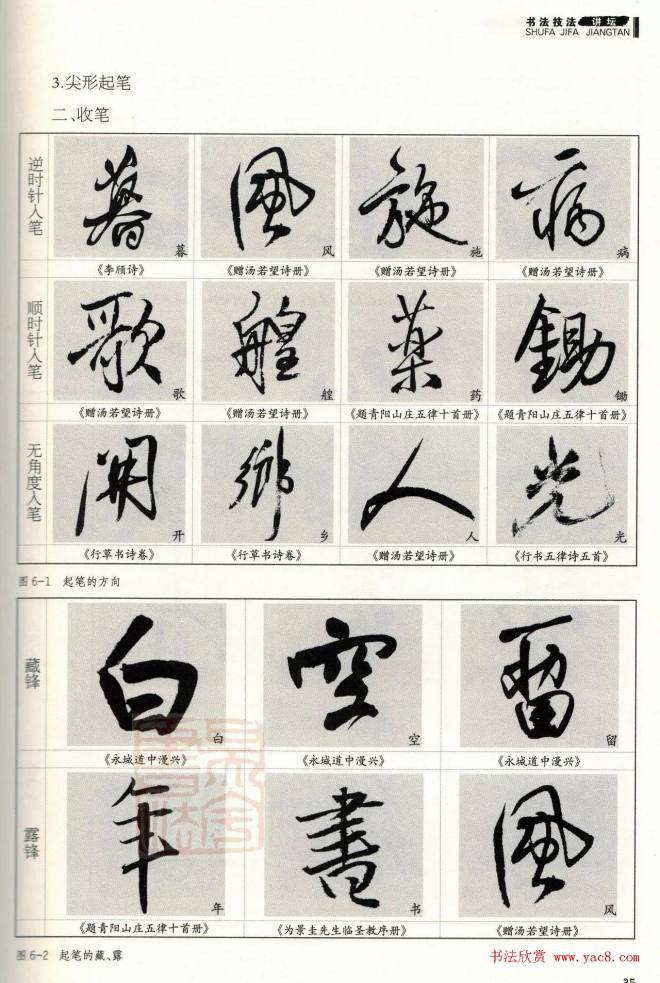 书法技法 讲坛
SHUFA JIFA JIANGTAN
3.尖形起笔
二、收笔
逆时针入笔
暮 风 施 病
《李颀诗》 《赠汤若望诗册》 《赠汤若望诗册》 《赠汤若望诗册》
顺时针入笔
歌 艎 药 锄
《赠汤若望诗册》 《赠汤若望诗册》 《题青阳山庄五律十首册》 《题青阳山庄五律十首册》
无角度入笔
开 乡 人 光
《行草书诗卷》 《行草书诗卷》 《赠汤若望诗册》 《行书五律诗五首》
图 6-1 起笔的方向
藏锋
白 空 留
《永城道中漫兴》 《永城道中漫兴》 《永城道中漫兴》
露锋
年 书 风
《题青阳山庄五律十首册》 《为景圭先生临圣教序册》 《赠汤若望诗册》
图 6-2 起笔的藏、露
书法欣赏 www.yac8.com
35